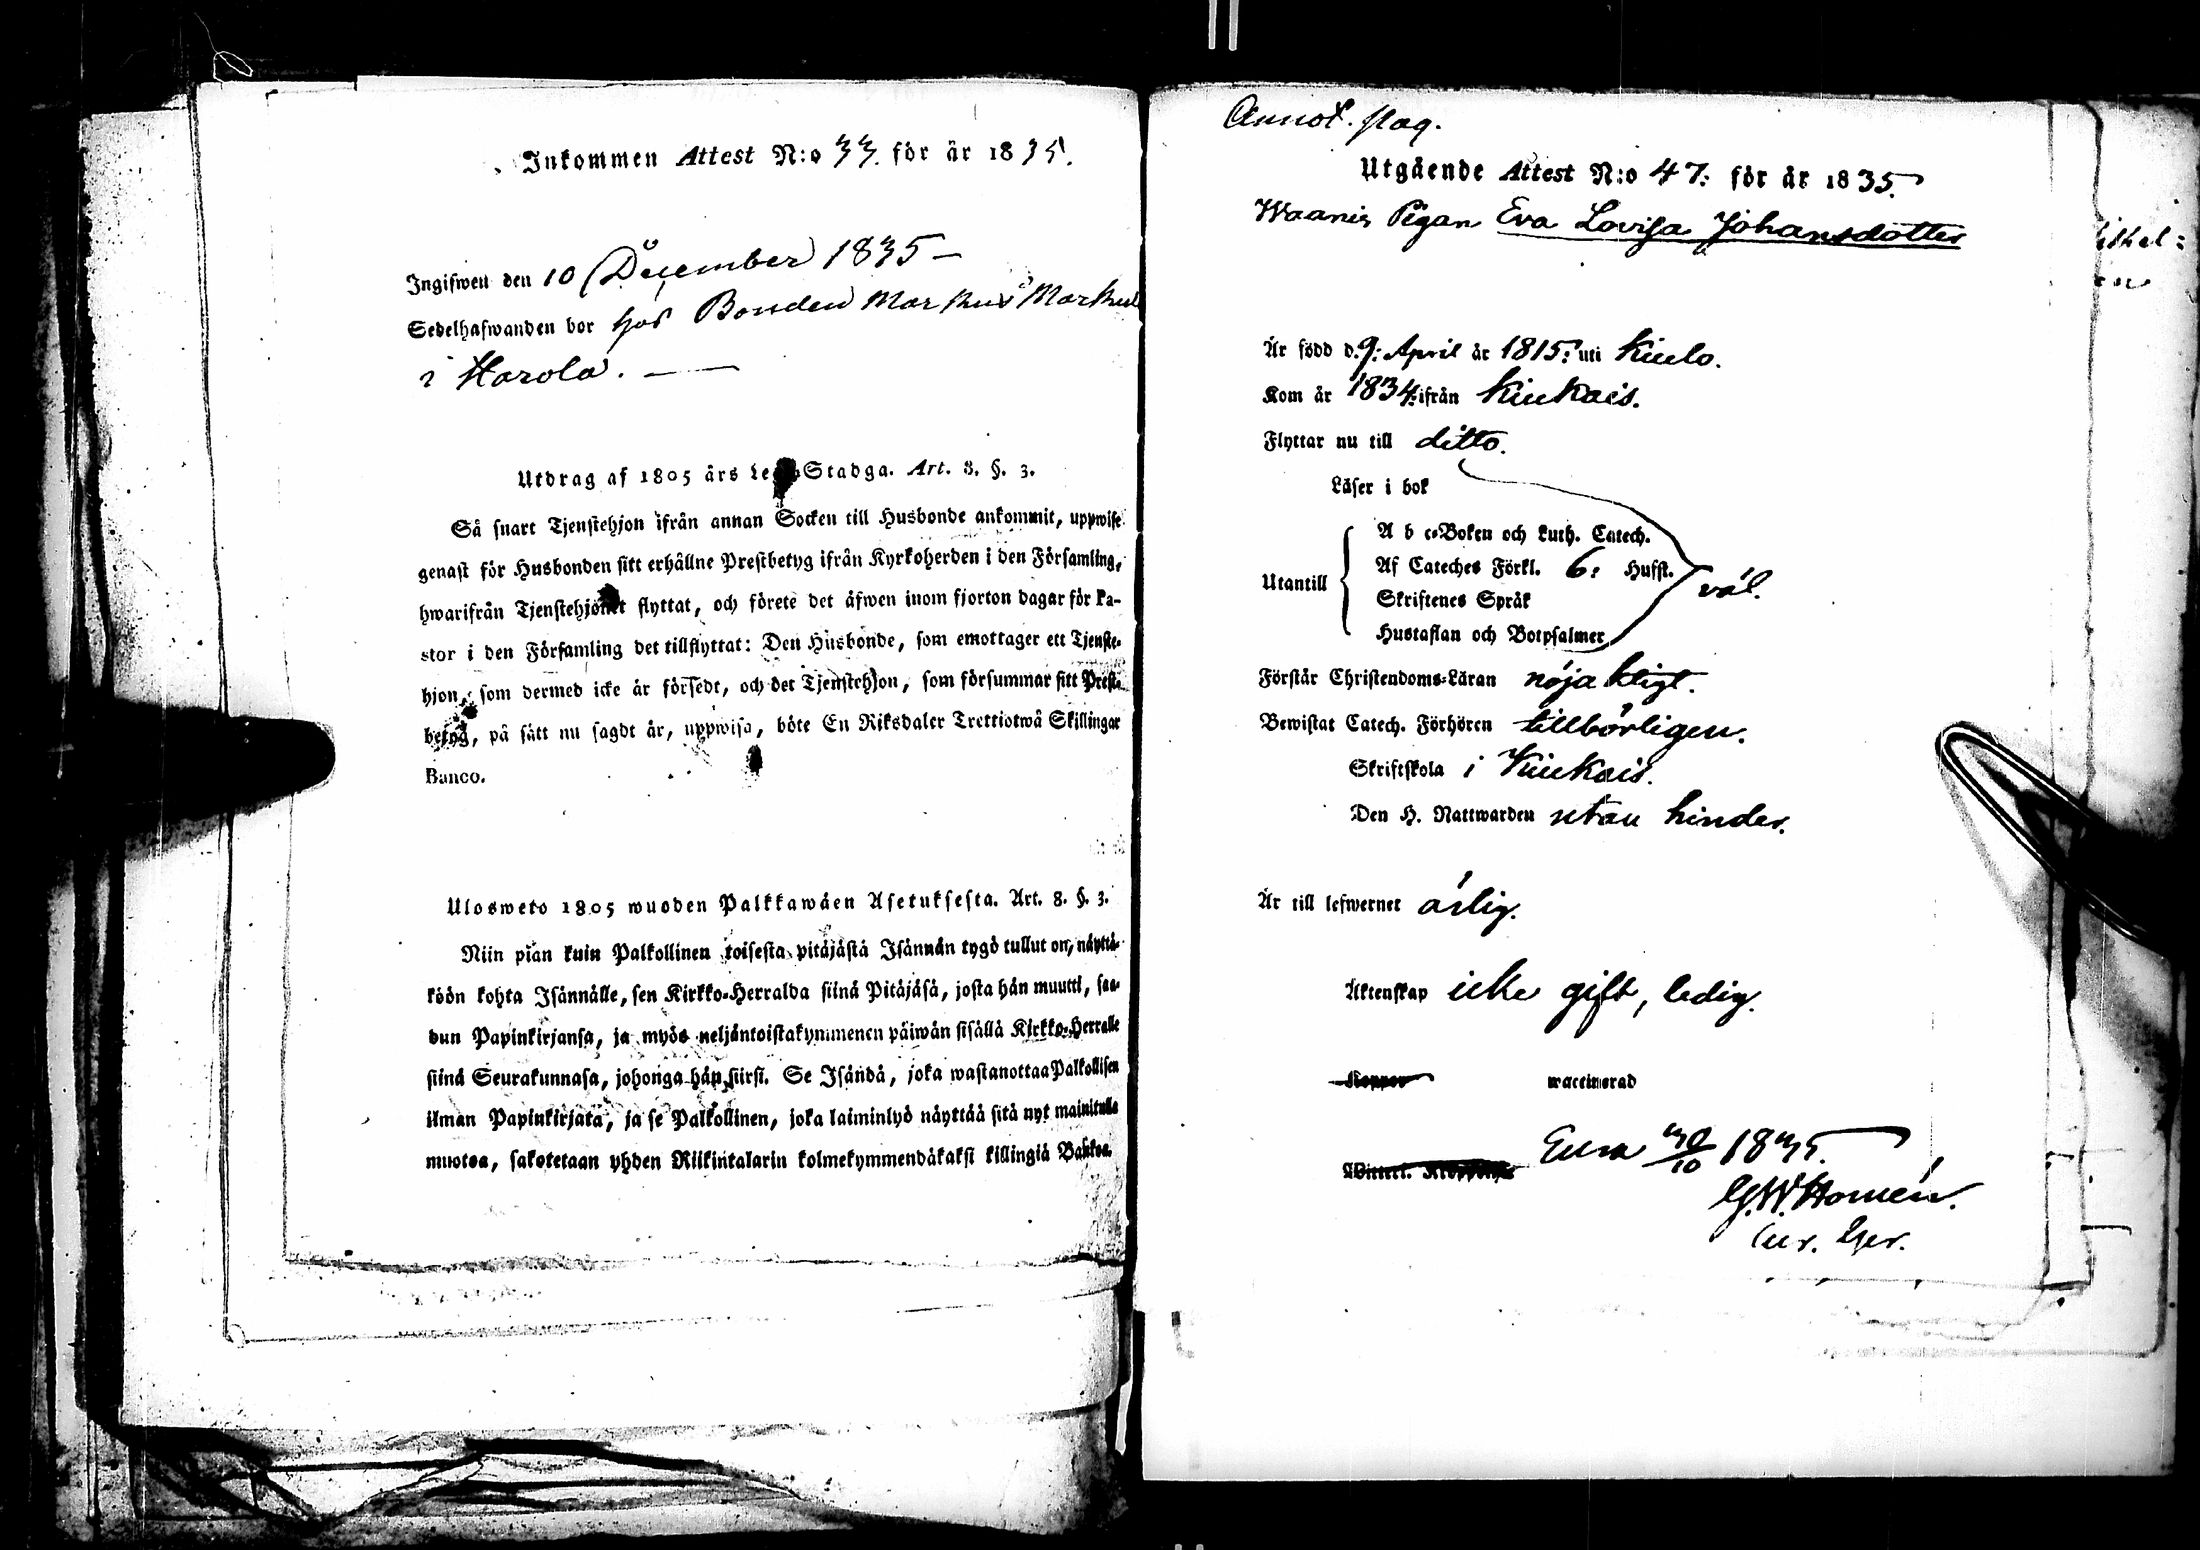 Inkommen Attest N:o 33. för år 1835.
Ingifwen den 10 December 1835 —
Sedelhafwanden bor hos Bonden Markus
i Harola. —
Utdrag af 1805 års Stadga. Art. 8. §. 3.
Så snart Tjenstehjon ifrån annan Socken till Husbonde ankommit, uppwise
genast för Husbonden sitt erhållne Prestbetyg ifrån Kyrkoherden i den Församling,
hwarifrån Tjenstehjonet flyttat, och förete det äfwen inom fjorton dagar för Pa-
stor i den Församling det tillflyttat: Den Husbonde, som emottager ett Tjenste-
hjon, som dermed icke är försedt, och det Tjenstehjon, som försummar sitt Prest-
betyg, på sätt nu sagdt är, uppwisa, böte En Riksdaler Trettiotwå Skillingar
Banco.
Ulosweto 1805 wuoden Palkkawäen Asetuksesta. Art. 8. §. 3.
Niin pian kuin Palkollinen toisesta pitäjästä Isännän tygö tullut on, näyttä-
köön kohta Isännälle, sen Kirkko-Herralda siinä Pitäjäsä, josta hän muutti, saa-
dun Papinkirjansa, ja myös neljäntoistakymmenen päiwän sisällä Kirkko-Herralle
siinä Seurakunnasa, johonga hän siirsi. Se Isändä, joka wastanottaa Palkollisen
ilman Papinkirjata, ja se Palkollinen, joka laiminlyö näyttää sitä nyt mainitulla
muotoa, sakotetaan yhden Riikintalarin kolmekymmendäkaksi killingiä Bankoa.
Annot. pag.
Utgående Attest N:o 47: för år 1835.
Pigan Eva Lovisa Johansdotter
Är född d. 9: April år 1815: uti Kiulo.
Kom år 1834: ifrån Kiukais.
Flyttar nu till ditto.
Läser i bok
A b c-Boken och Luth. Catech.
Utantill Af Cateches Förkl. 6: Hufst. väl.
Skriftenes Språk
Hustaflan och Botpsalmer
Förstår Christendoms-Läran nöjaktigt.
Bewistat Catech. Förhören tillbörligen.
Skriftskola i Kiukais.
Den H. Nattwarden utan hinder.
Är till lefwernet ärlig.
Äktenskap icke gift, ledig.
Koppor waccinerad
Eura 30/10 1835.
G. W. Homén.